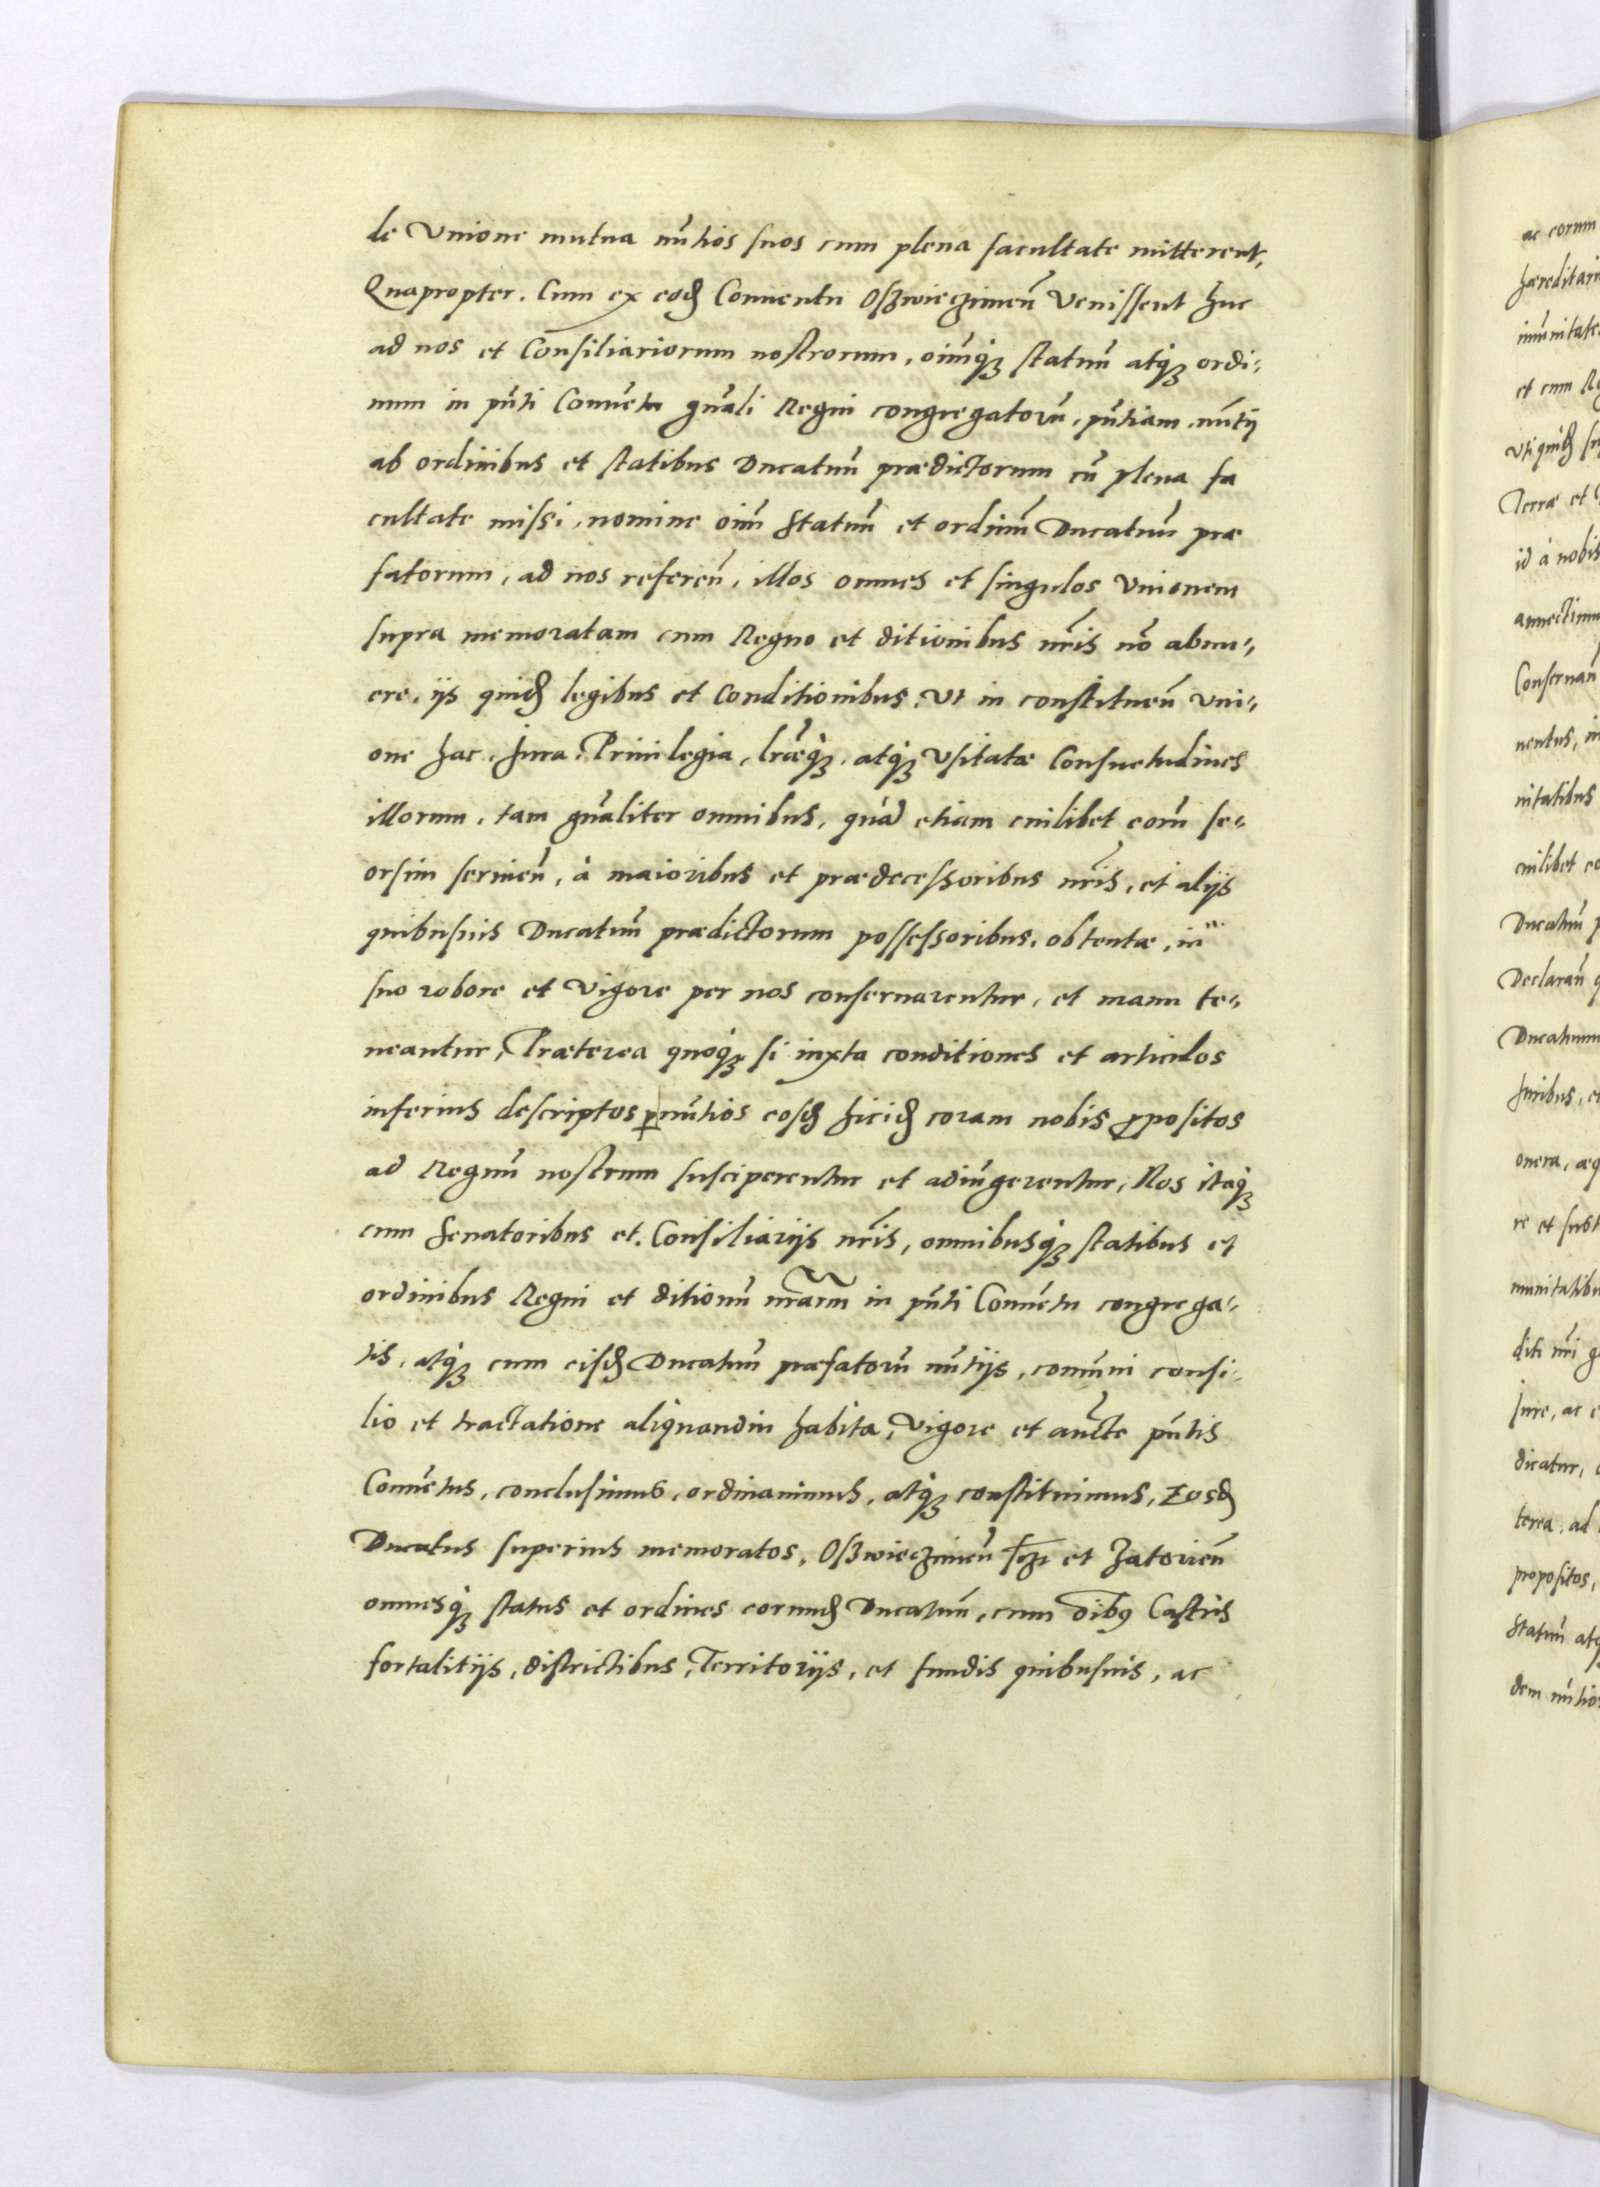 de Vnione mutua nũtios suos cum plena facultate mitterent,
Quapropter. Cum ex eođ Conuentu Oßwieczimeñ Venissent huc
ad nos et Consiliariorum nostrorum, oim̃qꝫ statuũ atqꝫ ordi-
num in pñti Conuẽtu gñali Regni congregatorũ, pñtiam, nũtij
ab ordinibus et statibus Ducatuũ prædictorum cũ plena fa
cultate missi, nomine oim̃ Statuũ et ordinũ Ducatuũ præ
fatorum, ad nos refereñ, illos omnes et singulos Vnionem
supra memoratam cum Regno et ditionibus nr̃is nõ abnu-
ere, ijs quiđ legibus et Conditionibus, Vt in constitueñ Vni-
one hac, Jura, Priuilegia, lr̃æqꝫ, atqꝫ Vsitatæ Consuetudines
illorum, tam gñaliter omnibus, quàm etiam cuilibet eorũ se-
orsim seruieñ, à maioribus et prædecessoribus nr̃is, et alijs
quibusuis Ducatuũ prædictorum possessoribus, obtentæ, in
suo robore et Vigore per nos conseruarentur, et manu te-
neantur, Præterea quoqꝫ si iuxta conditiones et articulos
inferius descriptos ꝑ nũtios eosđ hiciđ coram nobis ꝓpositos
ad Regnũ nostrum susciperentur et adiũgerentur, Nos itaqꝫ
cum Senatoribus et Consiliarijs nr̃is, omnibusqꝫ statibus et
ordinibus Regni et ditionũ nr̃arũ in pñti Conuẽtu congrega-
tis, atqꝫ cum eisđ Ducatuũ præfatorũ nũtijs, comũni consi-
lio et tractatione aliquandiu habita, Vigore et auc̃te pñtis
Conuẽtus, conclusimus, ordinauimus, atqꝫ constituimus, Eosđ
Ducatus superius memoratos, Oßwieczimeñ sczi et Zatorieñ
omnesqꝫ status et ordines eorunđ Ducatuũ, cum õibꝰ Castris
fortalitijs, districtibus, Territorijs, et fundis quibusuis, ac
ac eorum
hæreditari
imũnitate
et cum Re
Vti quiđ su
Terræ et
id à nobis
annectimu
Conseruañ
nentus, in
nitatibus
cuilibet eo
Ducatuũ p
Declarañ q
Ducatuum
Juribus, et
onera, æq
re et subt
munitatibu
diti nr̃i g
jure, ac e
dicatur,
terea, ad
propositos,
Statuũ atq
dem nũtios